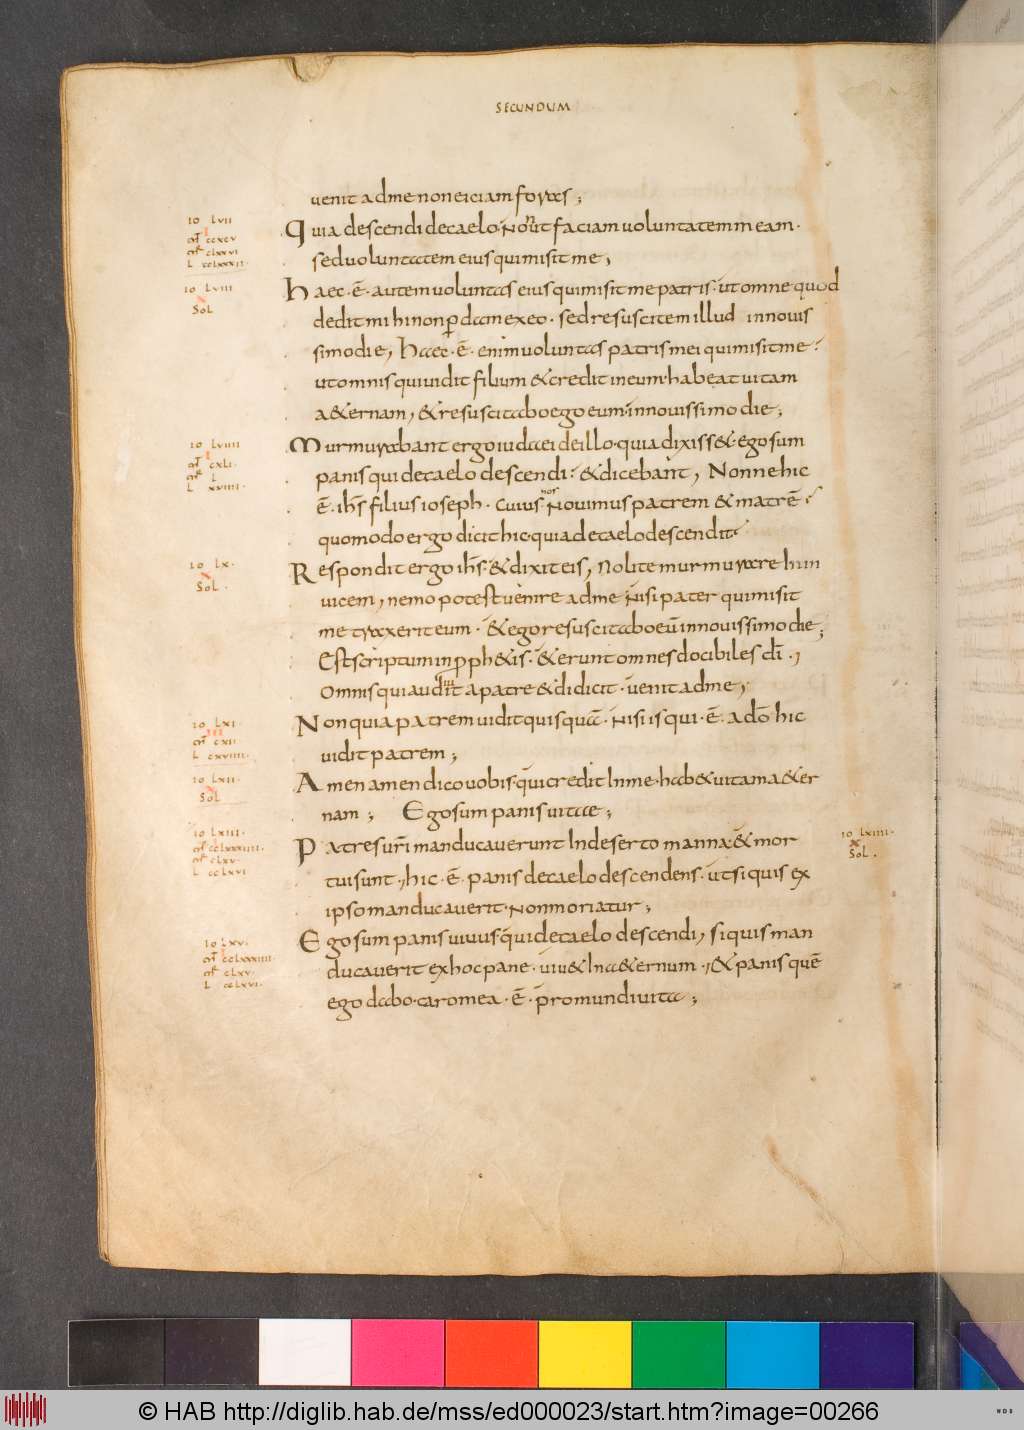 SECUNDUM
venit ad me non eiciam foras;
Quia descendi de caelo. Non ut faciam voluntatem meam.
sed voluntatem eius qui misit me,
Haec .ē. autem voluntas eius qui misit me patris. ut omne quod
dedit mihi non p̲dam ex eo. sed resuscitem illud in novis
simo die, Haec .ē. enim voluntas patris mei qui misit me.
ut omnis qui vidit filium & credit in eum. habeat vitam
a&ernam, & resuscitabo ego eum. in novissimo die;
Murmurabant ergo iudaei de illo. quia dixiss&. ego sum
panis qui de caelo descendi. & dicebant, Nonne hic
ē. ihs̄ filius ioseph. Cuius nos Novimus patrem & matrē.
quomodo ergo dicit hic. quia de caelo descendit.
Respondit ergo ihs̄. & dixit eis, Nolite murmurare in in
vicem, nemo potest venire ad me Nisi pater qui misit
me traxerit eum. & ego resuscitabo eū in novissimo die;
Est scriptum in p̲ph&is. & erunt omnes docibiles dī.,
Omnis qui audivit a patre & didicit. venit ad me,
Non quia patrem vidit quisquā. Nisi is qui .ē. a dō hic
vidit patrem;
Amen amen dico vobis. qui credit In me. hab& vitam a&er
nam; Ego sum panis vitae;
Patres ur̄i manducaverunt In deserto manna. & mor
tui sunt., hic .ē. panis de caelo descendens. ut si quis ex
ipso manducaverit. Non moriatur;
Ego sum panis vivus. qui de caelo descendi, si quis man
ducaverit ex hoc pane. viv& In a&ernum., & panis quē
ego dabo. caro mea .ē. pro mundi vita;
IO LVII
MT CCXCV
MR CLXXVI
L CCLXXXII
IO LVIII
SOL
IO LVIIII
MT CXLI
MR L
L XVIIII
IO LX
SOL
IO LXI
MT CXII
L CXVIIII
IO LXII
SOL
IO LXIII
MT CCLXXXIIII
MR CLXV
L CCLXVI
IO LXIIII
SOL
IO LXV
MT CCLXXXIIII
MR CLXV
L CCLXVI
© HAB http://diglib.hab.de/mss/ed000023/start.htm?image=00266
WDB